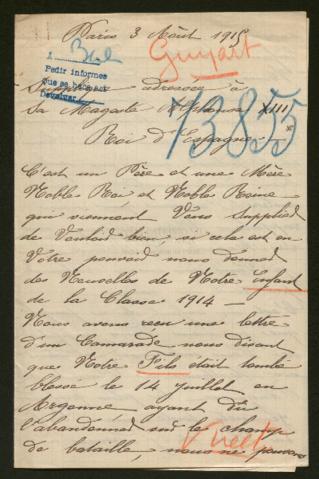 Paris 3 Août 1915
Guyart
A Bal
Pedir informes
que se
Devolver
Supplique adressée à
Sa Magesté Alphonse XIII
Roi d'Espagne
73855
C'est un Père et une Mère
Noble Roi, et Noble Reine
qui viennent Vous supplier
de Vouloir bien, si cela est en
Votre pouvoir nous donner
des Nouvelles de Notre Enfant
de la Classe 1914 —
Nous avons reçu une lettre
d'un Camarade nous disant
que Notre Fils était tombé
blessé le 14 Juillet en
Argonne ayant dû
l'abandonner sur le champ
de bataille, nous ne pouvons